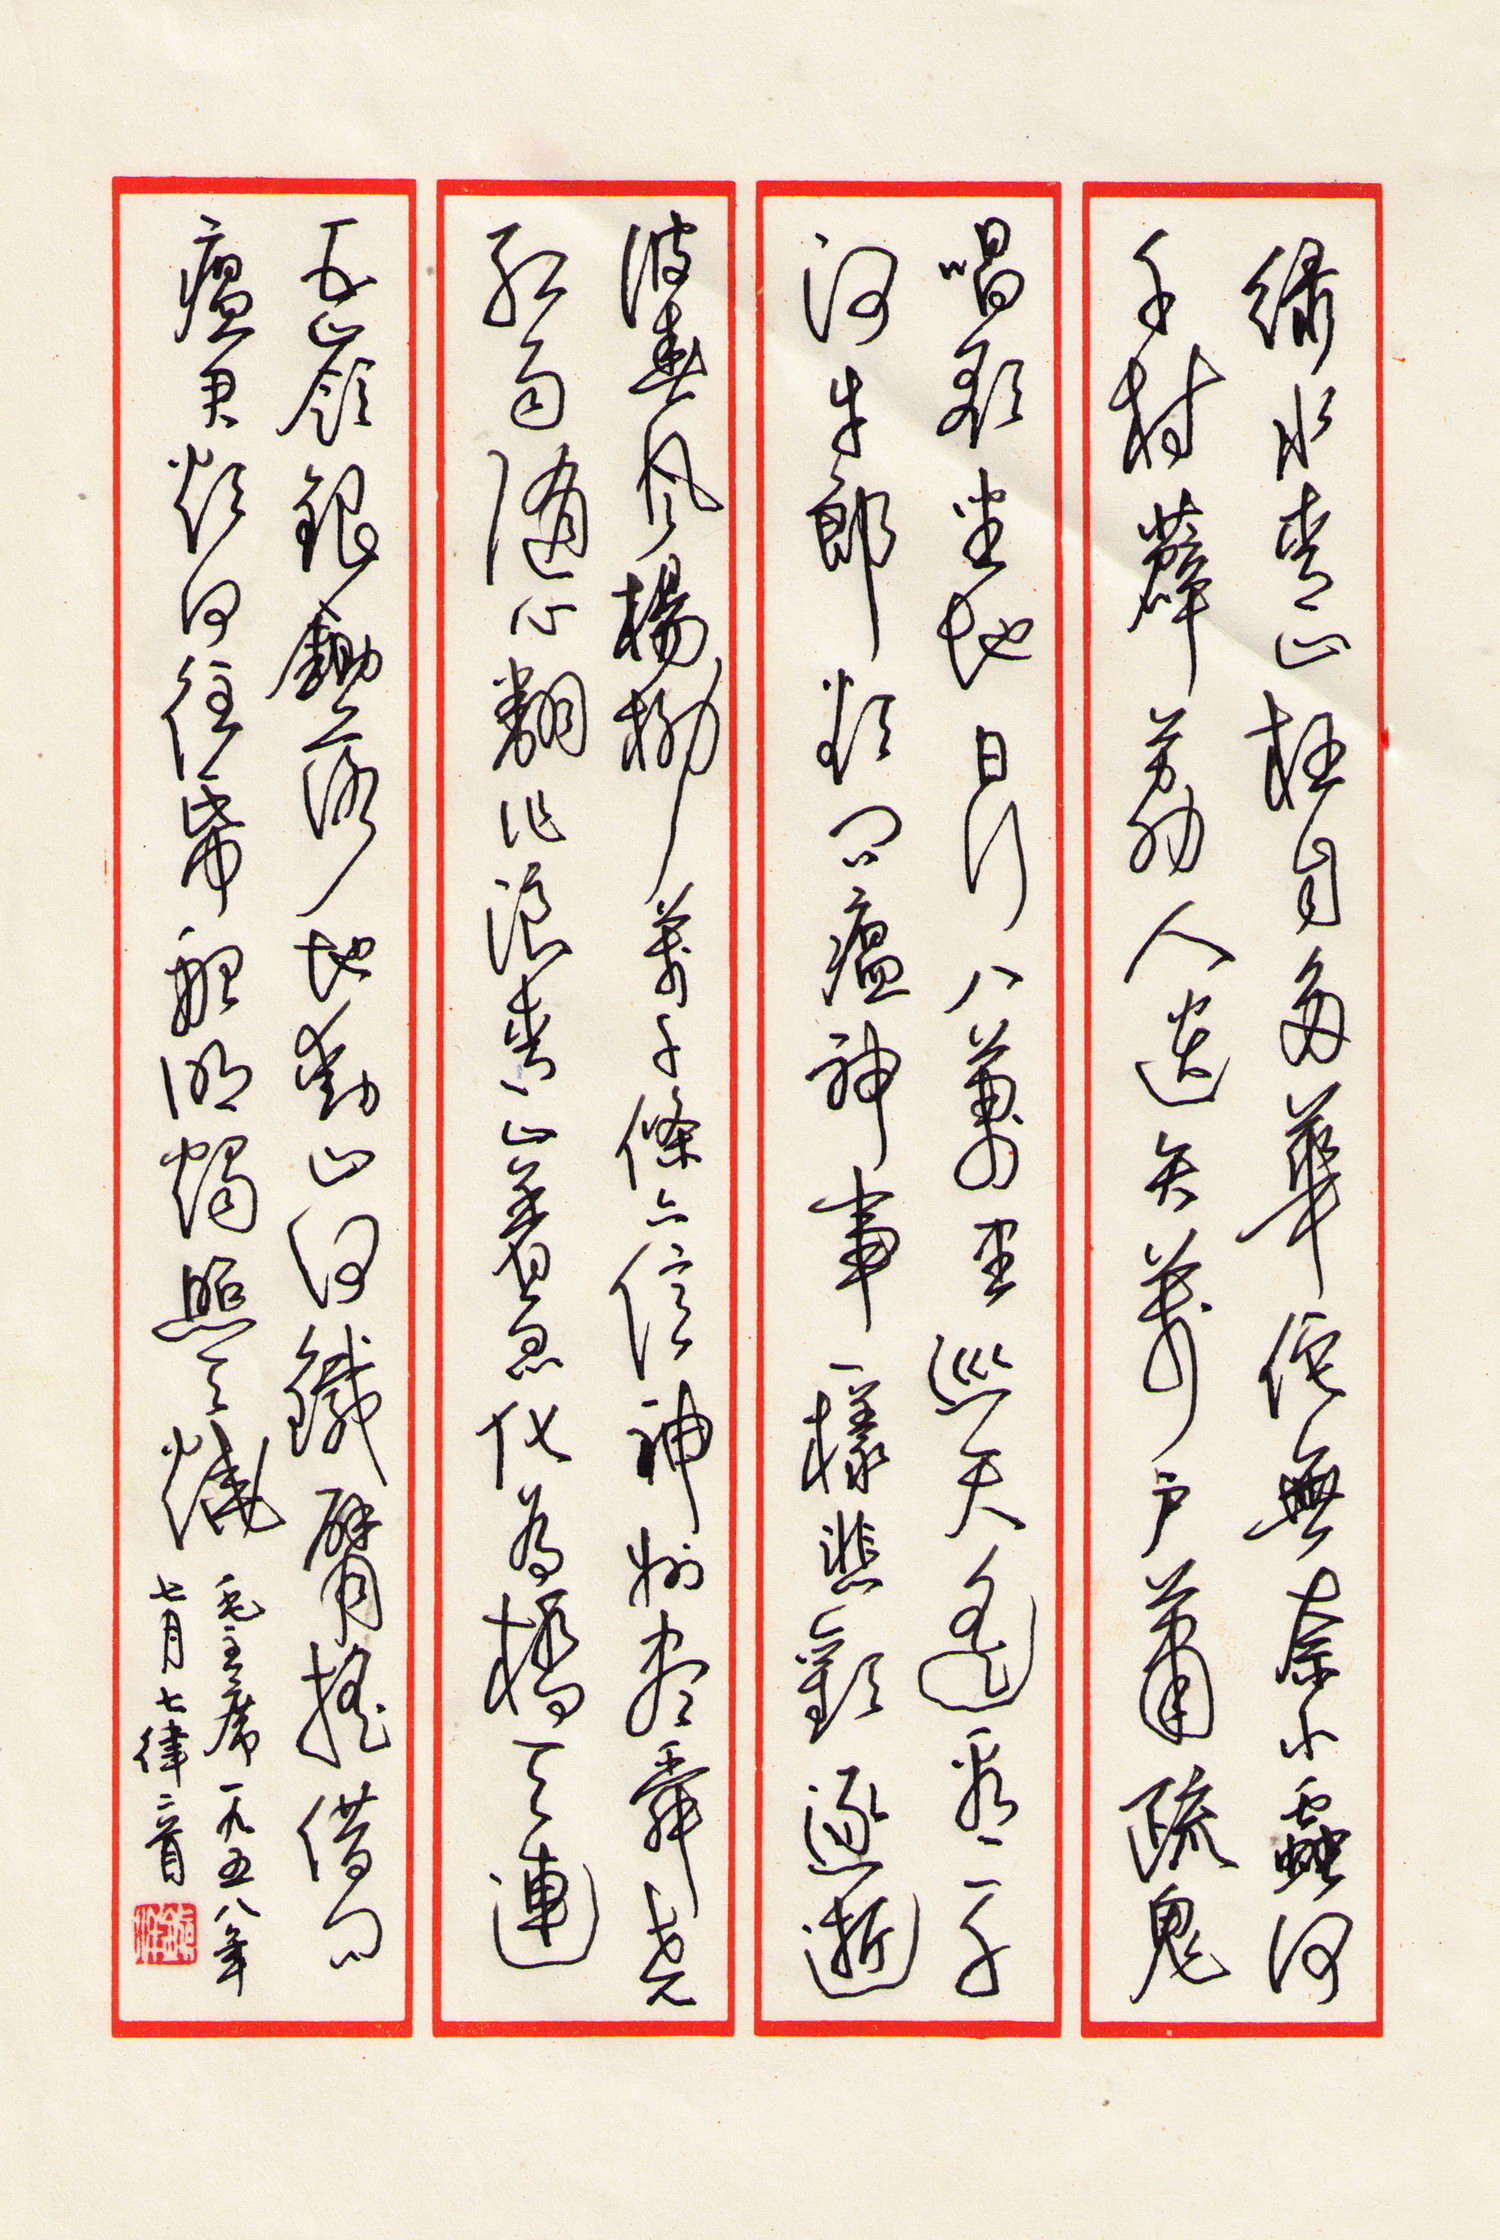 綠水青山枉自多華佗無奈小蟲何
千村薜荔人遺矢萬戶蕭疏鬼
唱歌坐地日行八萬里巡天遙看一千
河牛郎欲問瘟神事一樣悲歡逐逝
波春風楊柳萬千條六億神州盡舜堯
紅雨隨心翻作浪青山著意化為橋天連
五嶺銀鋤落地動山河鐵臂搖借問
瘟君欲何往紙船明燭照天燒
毛主席一九五八年
七月七律二首